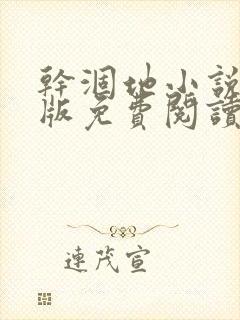 幹涸地小說
版免費閱讀
連茂宣